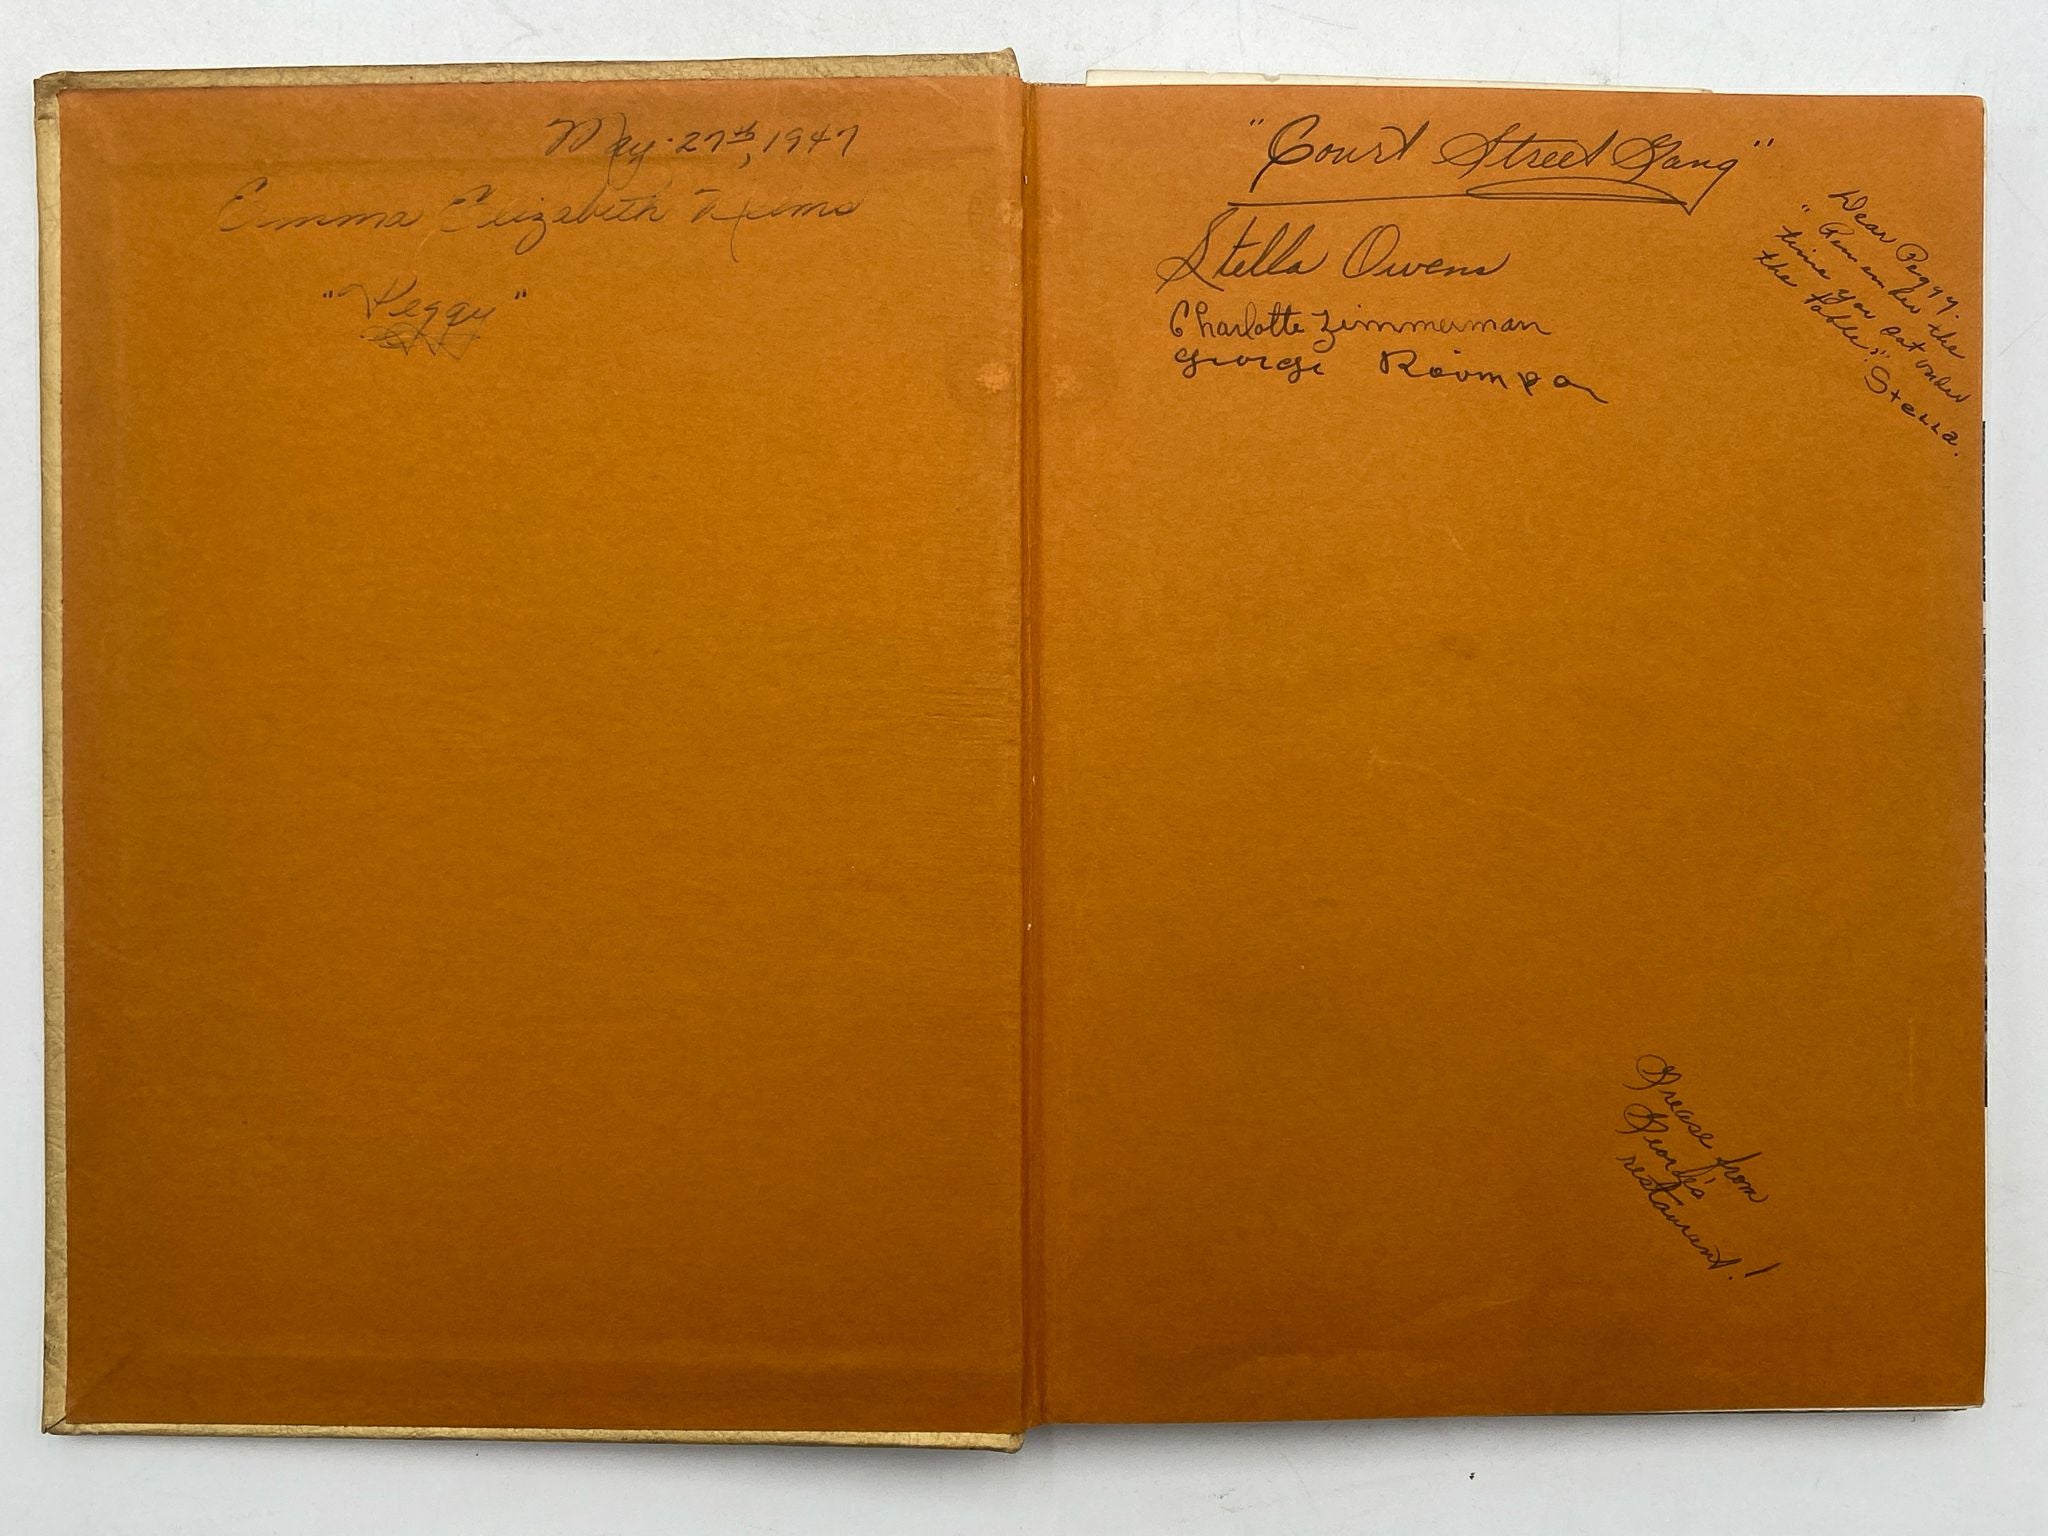 May 27th, 1947
Emma Elizabeth
"Peggy"
"Court Street Gang"
Stella Owens
Charlotte Zimmerman
George
Dear Peggy.
"Remember the
time you eat under
the table." Stella.
Grease from
George's
restaurant!